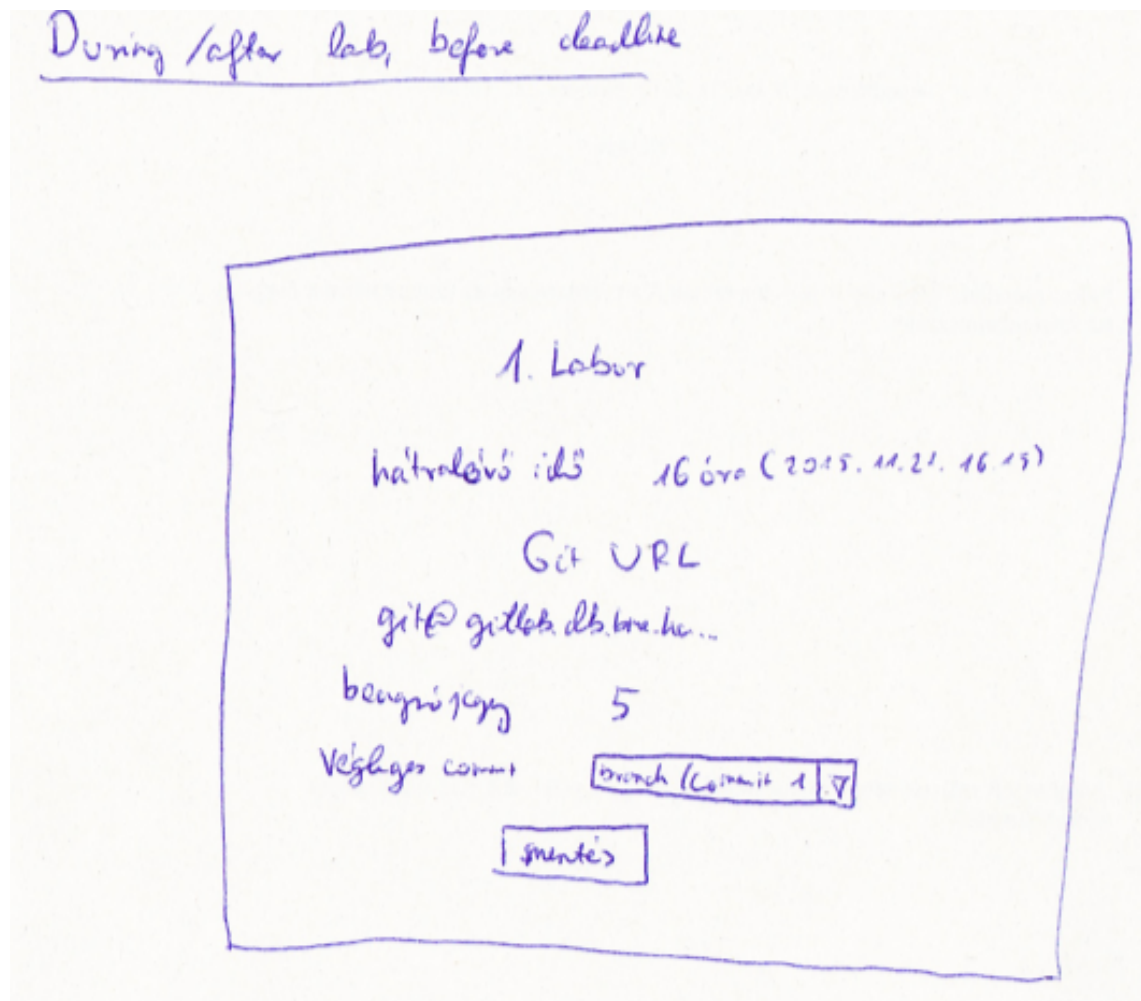 During /after lab, before deadline
1. Labor
hátralévő idő 16 óra (2015. 11. 21. 16.15)
Git URL
git@gitlab.db.bme.hu...
beugró jegy 5
Végleges commit branch/commit 1
mentés